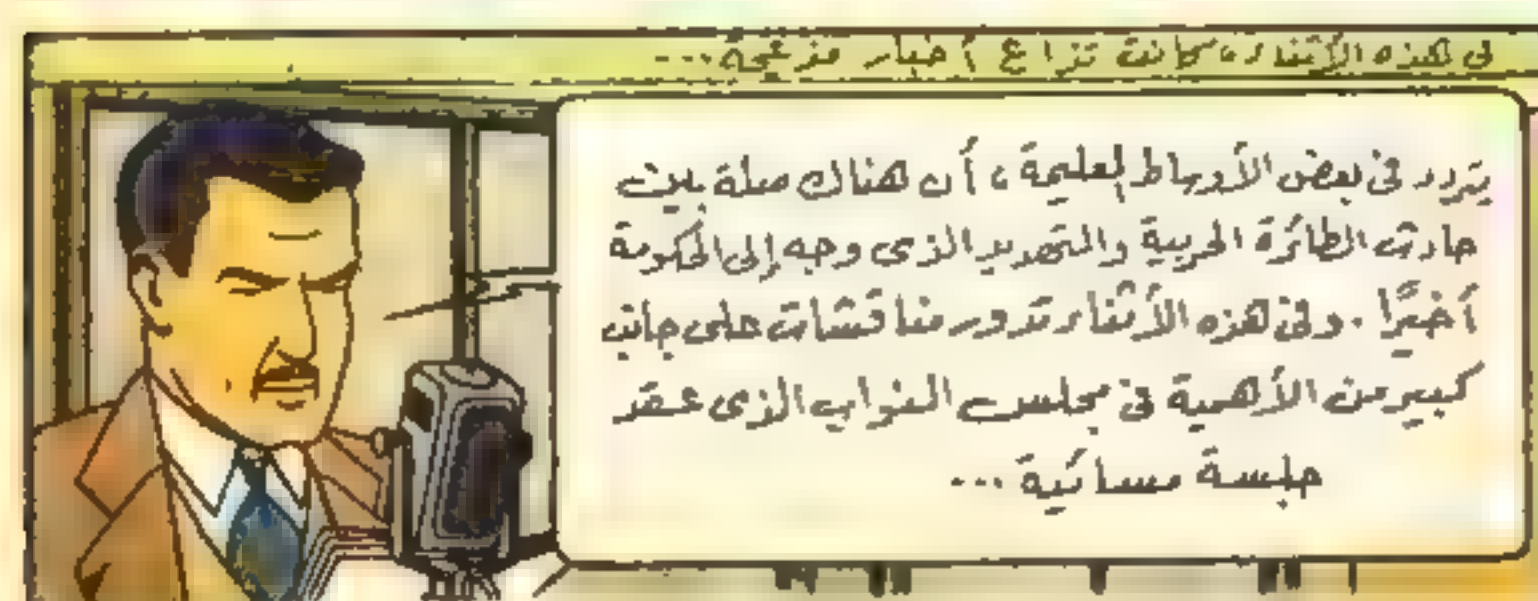 فى هذه الأثناء، كانت تذاع أخبار مزعجة...
يتردد فى بعض الأوساط العليمة، أن هناك صلة بين
حادث الطائرة الحربية والتهديد الذى وجه إلى الحكومة
أخيرًا. وفى هذه الأثناء تدور مناقشات على جانب
كبير من الأهمية فى مجلس النواب الذى عقد
جلسة مسائية...